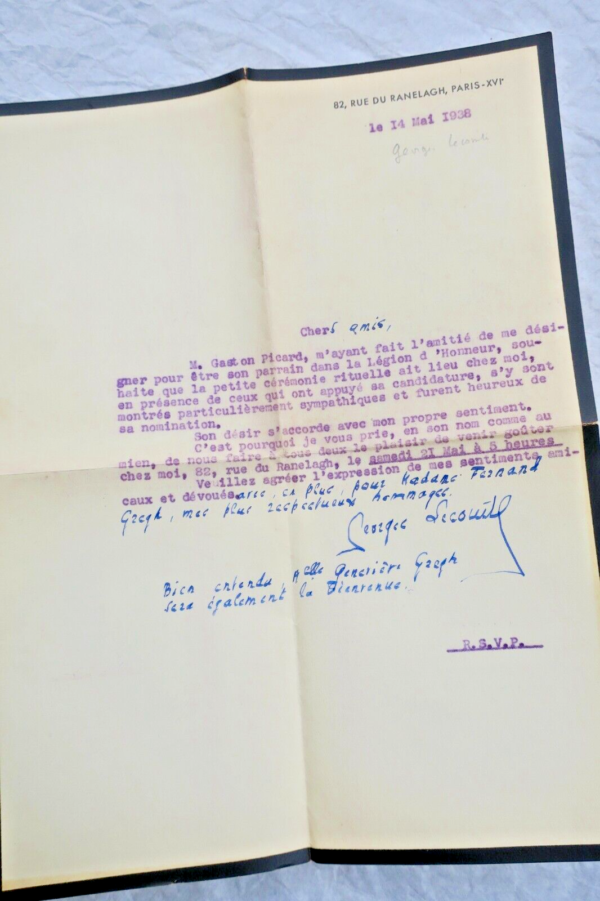 82, RUE DU RANELAGH, PARIS-XVIᵉ
le 14 Mai 1938
Chers amis,
M. Gaston Picard, m'ayant fait l'amitié de me dési-
gner pour être son parrain dans la Légion d 'Honneur, sou-
haite que la petite cérémonie rituelle ait lieu chez moi,
en présence de ceux qui ont appuyé sa candidature, s'y sont
montrés particulièrement sympathiques et furent heureux de
sa nomination.
Son désir s'accorde avec mon propre sentiment.
C'est pourquoi je vous prie, en son nom comme au
mien, de nous faire à tous deux le plaisir de venir goûter
chez moi, 82, rue du Ranelagh, le samedi 21 Mai à 5 heures
Veuillez agréer l'expression de mes sentiments ami-
caux et dévoués avec, en plus, pour Madame Fernand
Gregh, mes plus respectueux hommages.
Georges Lecomte
Bien entendu Melle Geneviève Gregh
sera également la bienvenue.
R.S.V.P.